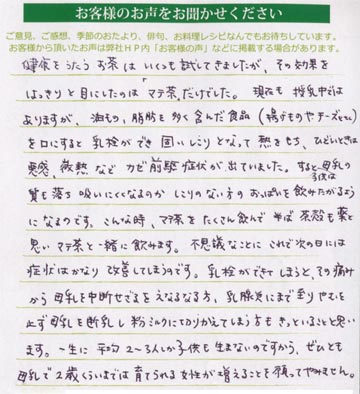 お客様のお声をお聞かせください
ご意見、ご感想、季節のおたより、俳句、お料理レシピなんでもお待ちしています。
お客様から頂いたお声は弊社HP内「お客様の声」などに掲載する場合があります。
健康をうたう お茶は いくつも試してきましたが、その効果を
はっきりと目にしたのは「マテ茶」だけでした。 現在も 授乳中では
ありますが、油もの、脂肪を多く含んだ食品 (揚げものやチーズなど)
を口にすると 乳栓ができ 固いしこりとなって 熱をもち、ひどいときは
悪感、微熱など カゼ前駆症状が出ていました。すると母乳の
質も落ち 吸いにくくなるのか しこりのない方の おっぱいを飲みたがるよう
になるのです。こんな時、マテ茶をたくさん飲んで 半ば 茶殻も薬と
思い マテ茶と一緒に飲みます。 不思議なことに これで次の日には
症状はかなり 改善してしまうのです。 乳栓ができてしまうと、その痛み
から母乳を中断せざるをえなくなる方、乳腺炎にまで至り やむを
止ず 母乳を断乳し 粉ミルクに切りかえてしまう方も きっといることと思い
ます。一生に 平均 2〜3人しか子供も生まないのですから、ぜひとも
母乳で 2歳くらいまでは 育てられる女性が 増えることを 願ってやみません。